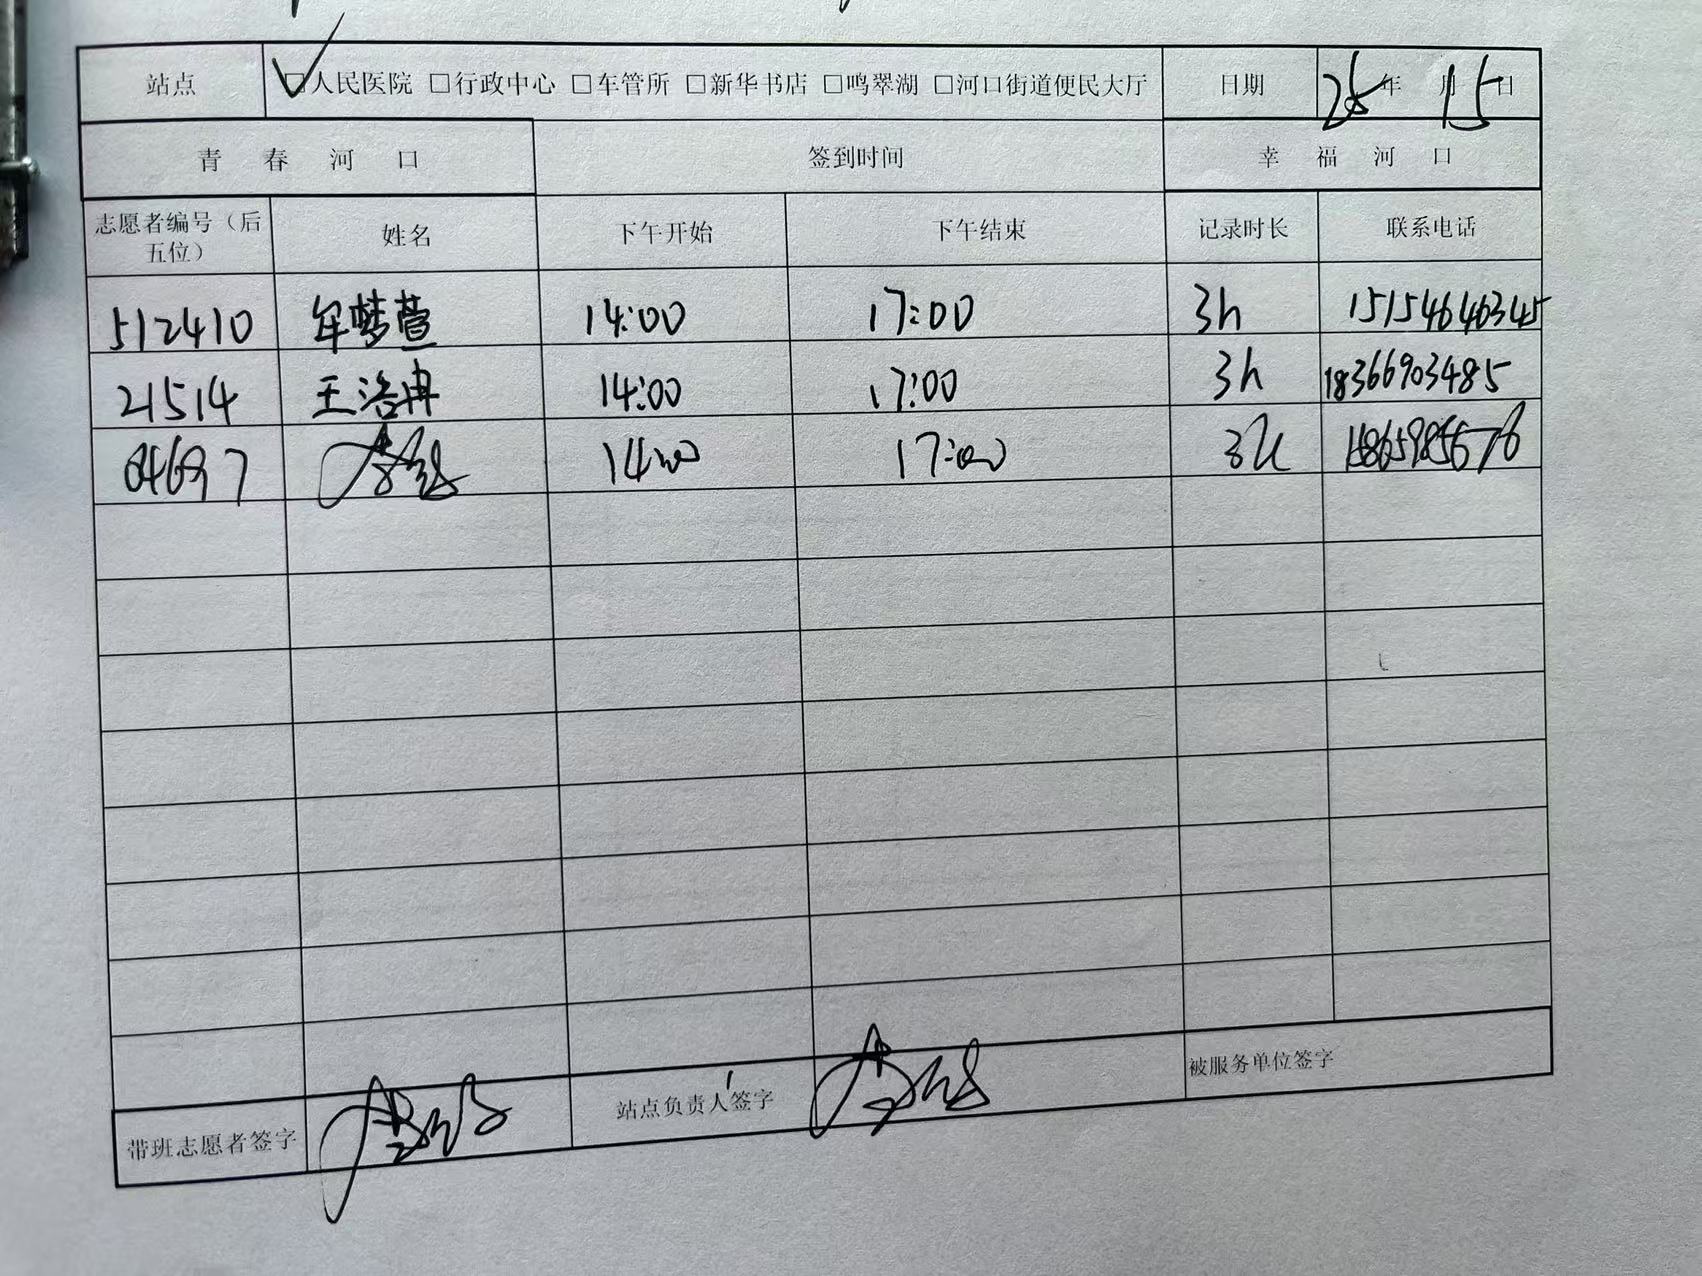 站点 ☑人民医院 □行政中心 □车管所 □新华书店 □鸣翠湖 □河口街道便民大厅 日期 25年 月15日
青春河口 签到时间 幸福河口
志愿者编号（后五位） 姓名 下午开始 下午结束 记录时长 联系电话
512410 牟梦萱 14:00 17:00 3h 15154646345
21514 王浩冉 14:00 17:00 3h 18366903485
04697 14:00 17:00 3h
带班志愿者签字 站点负责人签字 被服务单位签字